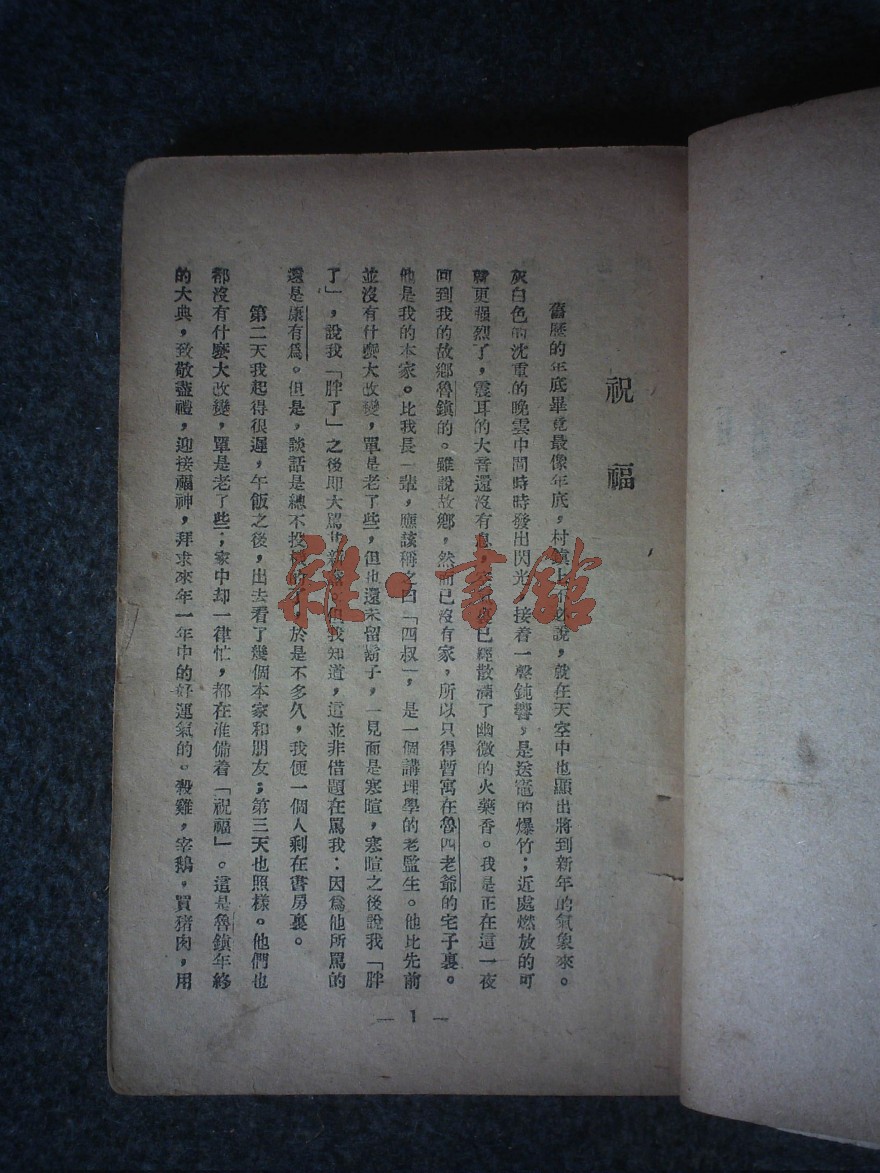 祝福
舊歷的年底畢竟最像年底，村鎮上不必說，就在天空中也顯出將到新年的氣象來。
灰白色的沈重的晚雲中間時時發出閃光，接着一聲鈍響，是送竈的爆竹；近處燃放的可
就更强烈了，震耳的大音還沒有息，空氣裏已經散滿了幽微的火藥香。我是正在這一夜
回到我的故鄉魯鎮的。雖說故鄉，然而已沒有家，所以只得暫寓在魯四老爺的宅子裏。
他是我的本家。比我長一輩，應該稱之曰「四叔」，是一個講理學的老監生。他比先前
並沒有什麼大改變，單是老了些，但也還未留鬍子，一見面是寒暄，寒暄之後說我「胖
了」，說我「胖了」之後即大罵其新黨。但我知道，這並非借題在罵我：因爲他所罵的
還是康有爲。但是，談話是總不投機的了，於是不多久，我便一個人剩在書房裏。
第二天我起得很遲，午飯之後，出去看了幾個本家和朋友；第三天也照樣。他們也
都沒有什麼大改變，單是老了些；家中却一律忙，都在准備着「祝福」。這是魯鎮年終
的大典，致敬盡禮，迎接福神，拜求來年一年中的好運氣的。殺雞，宰鵝，買豬肉，用
— 1 —
雜·書館